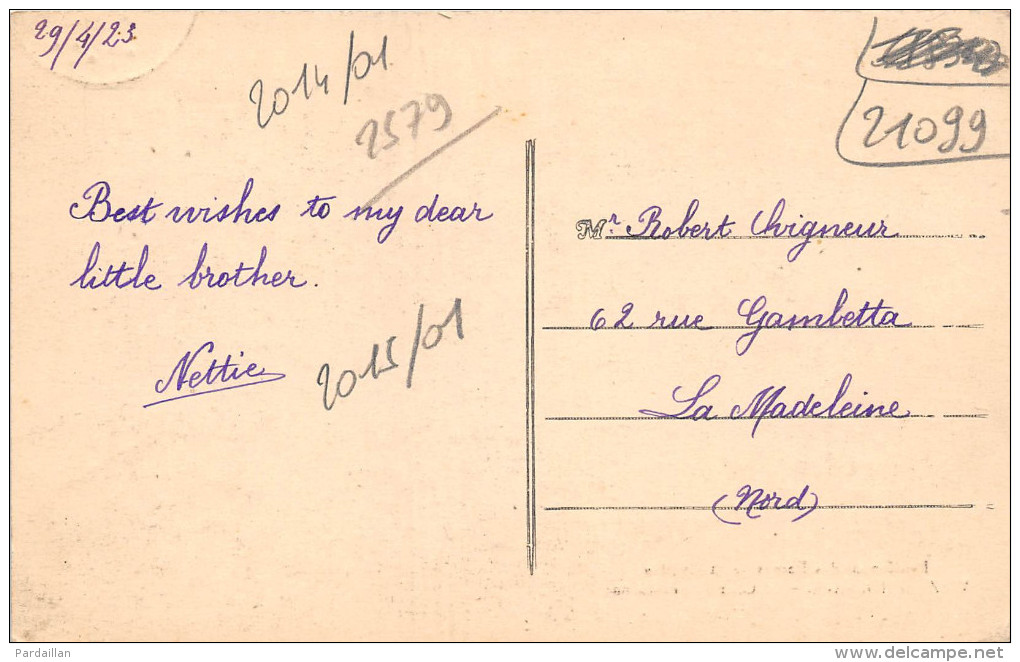 29/4/23
2014/01
2579
21099
Best wishes to my dear
little brother.
Nettie
2015/01
Mr. Robert Chrigneur
62 rue Gambetta
La Madeleine
(Nord)
Pardaillan
www.delcampe.net